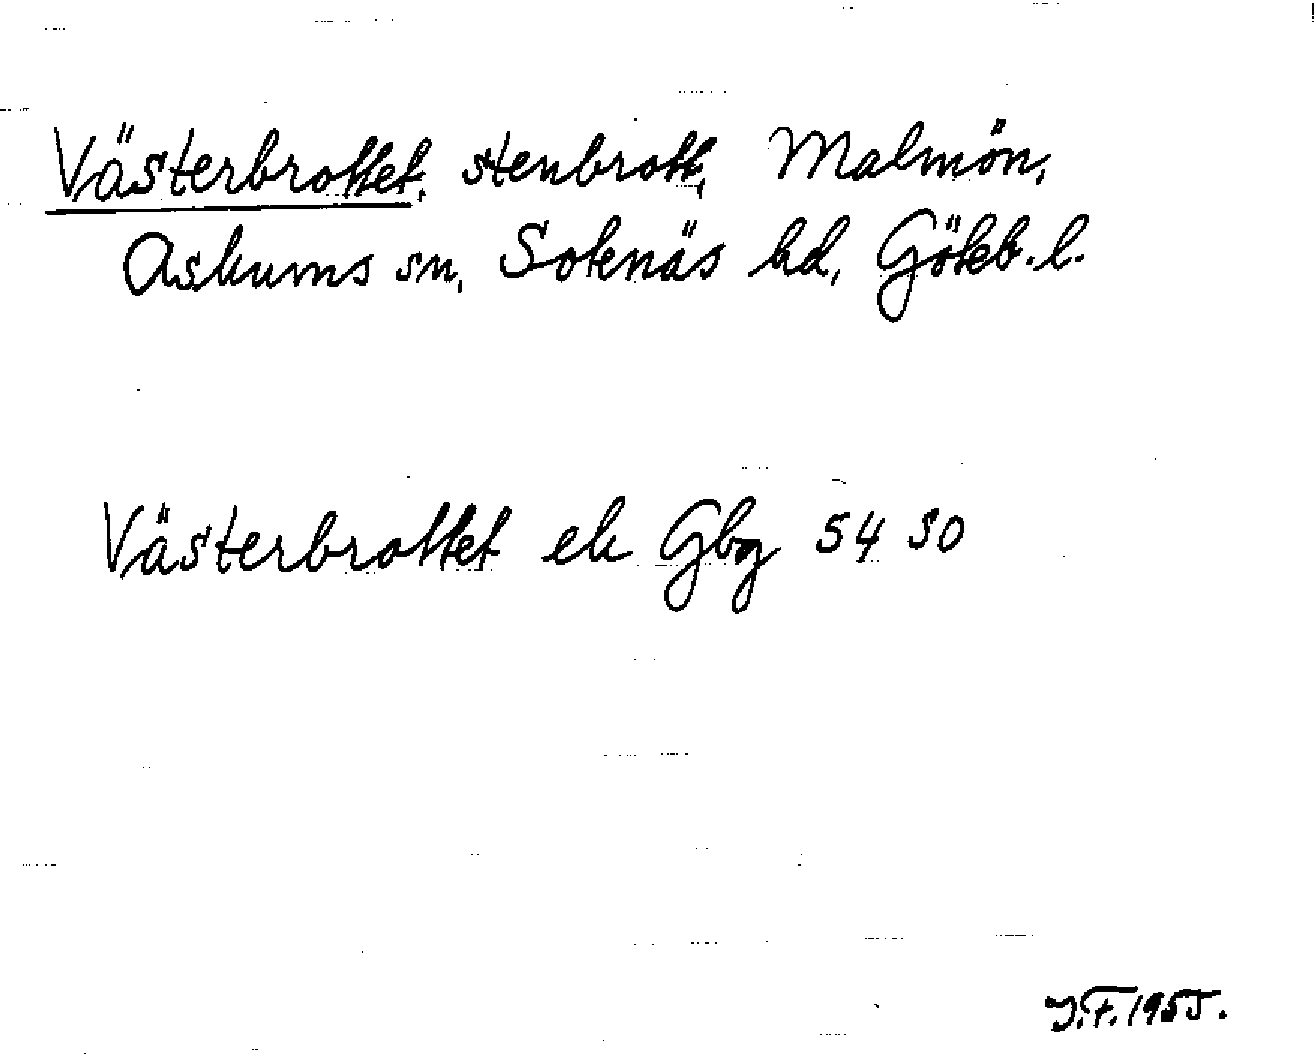 Västerbrottet, stenbrott, Malmön,
Askums sn, Sotenäs hd, Göteb. l.
Västerbrottet ek Gbg 54 SO
I.F. 1955.